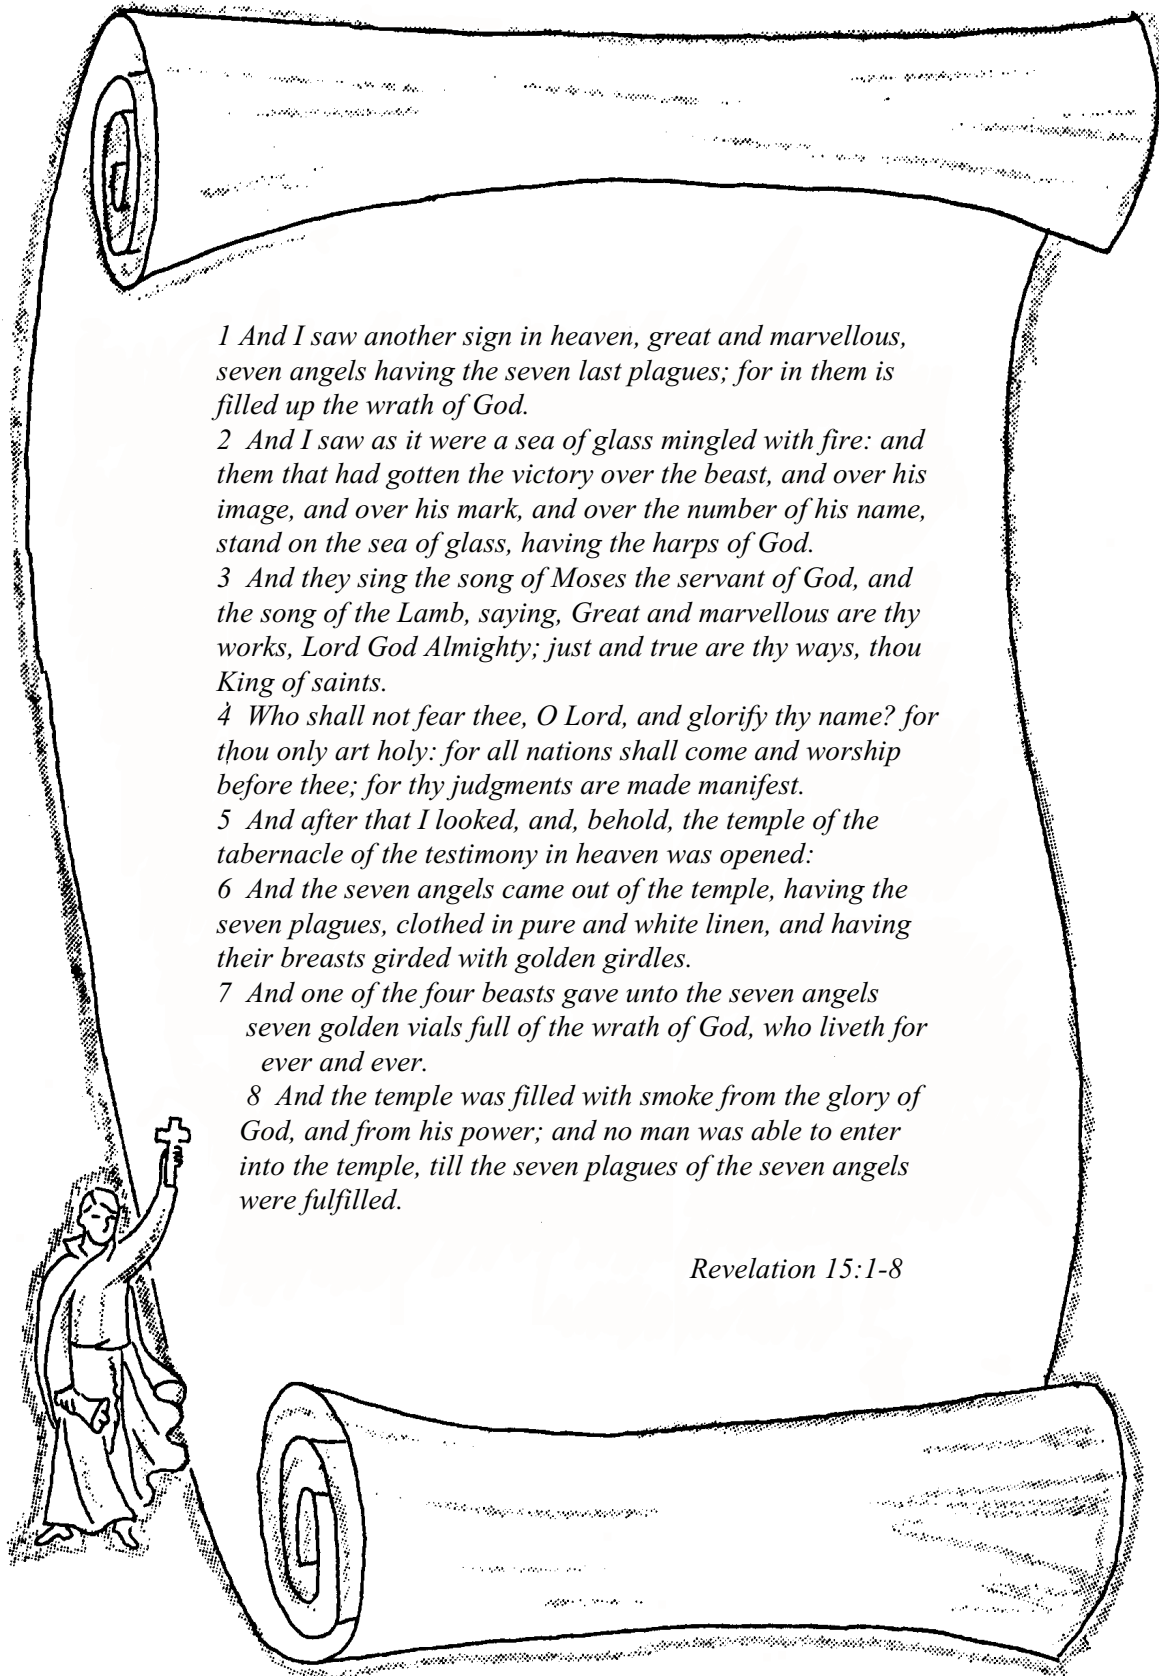 1 And I saw another sign in heaven, great and marvellous,
seven angels having the seven last plagues; for in them is
filled up the wrath of God.
2 And I saw as it were a sea of glass mingled with fire: and
them that had gotten the victory over the beast, and over his
image, and over his mark, and over the number of his name,
stand on the sea of glass, having the harps of God.
3 And they sing the song of Moses the servant of God, and
the song of the Lamb, saying, Great and marvellous are thy
works, Lord God Almighty; just and true are thy ways, thou
King of saints.
4 Who shall not fear thee, O Lord, and glorify thy name? for
thou only art holy: for all nations shall come and worship
before thee; for thy judgments are made manifest.
5 And after that I looked, and, behold, the temple of the
tabernacle of the testimony in heaven was opened:
6 And the seven angels came out of the temple, having the
seven plagues, clothed in pure and white linen, and having
their breasts girded with golden girdles.
7 And one of the four beasts gave unto the seven angels
seven golden vials full of the wrath of God, who liveth for
ever and ever.
8 And the temple was filled with smoke from the glory of
God, and from his power; and no man was able to enter
into the temple, till the seven plagues of the seven angels
were fulfilled.
Revelation 15:1-8